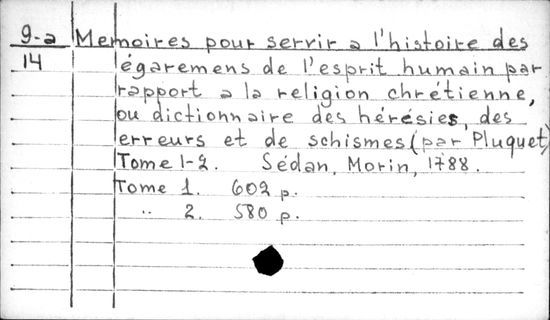 9-a Memoires pour servir a l'histoire des
14 égaremens de l'esprit humain par
rapport a la religion chrétienne,
ou dictionnaire des hérésies, des
erreurs et de schismes (par Pluquet)
Tome 1-2. Sédan, Morin, 1788.
Tome 1. 602 p.
" 2. 580 p.